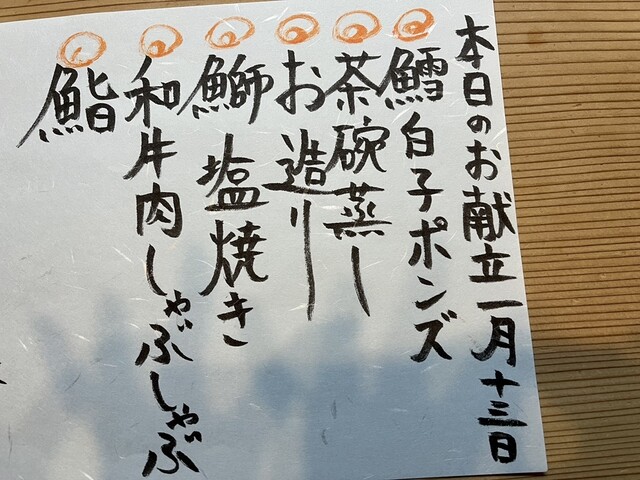 本日のお献立一月十三日
鱈白子ポンズ
茶碗蒸し
お造り
鰤塩焼き
和牛肉しゃぶしゃぶ
鮨